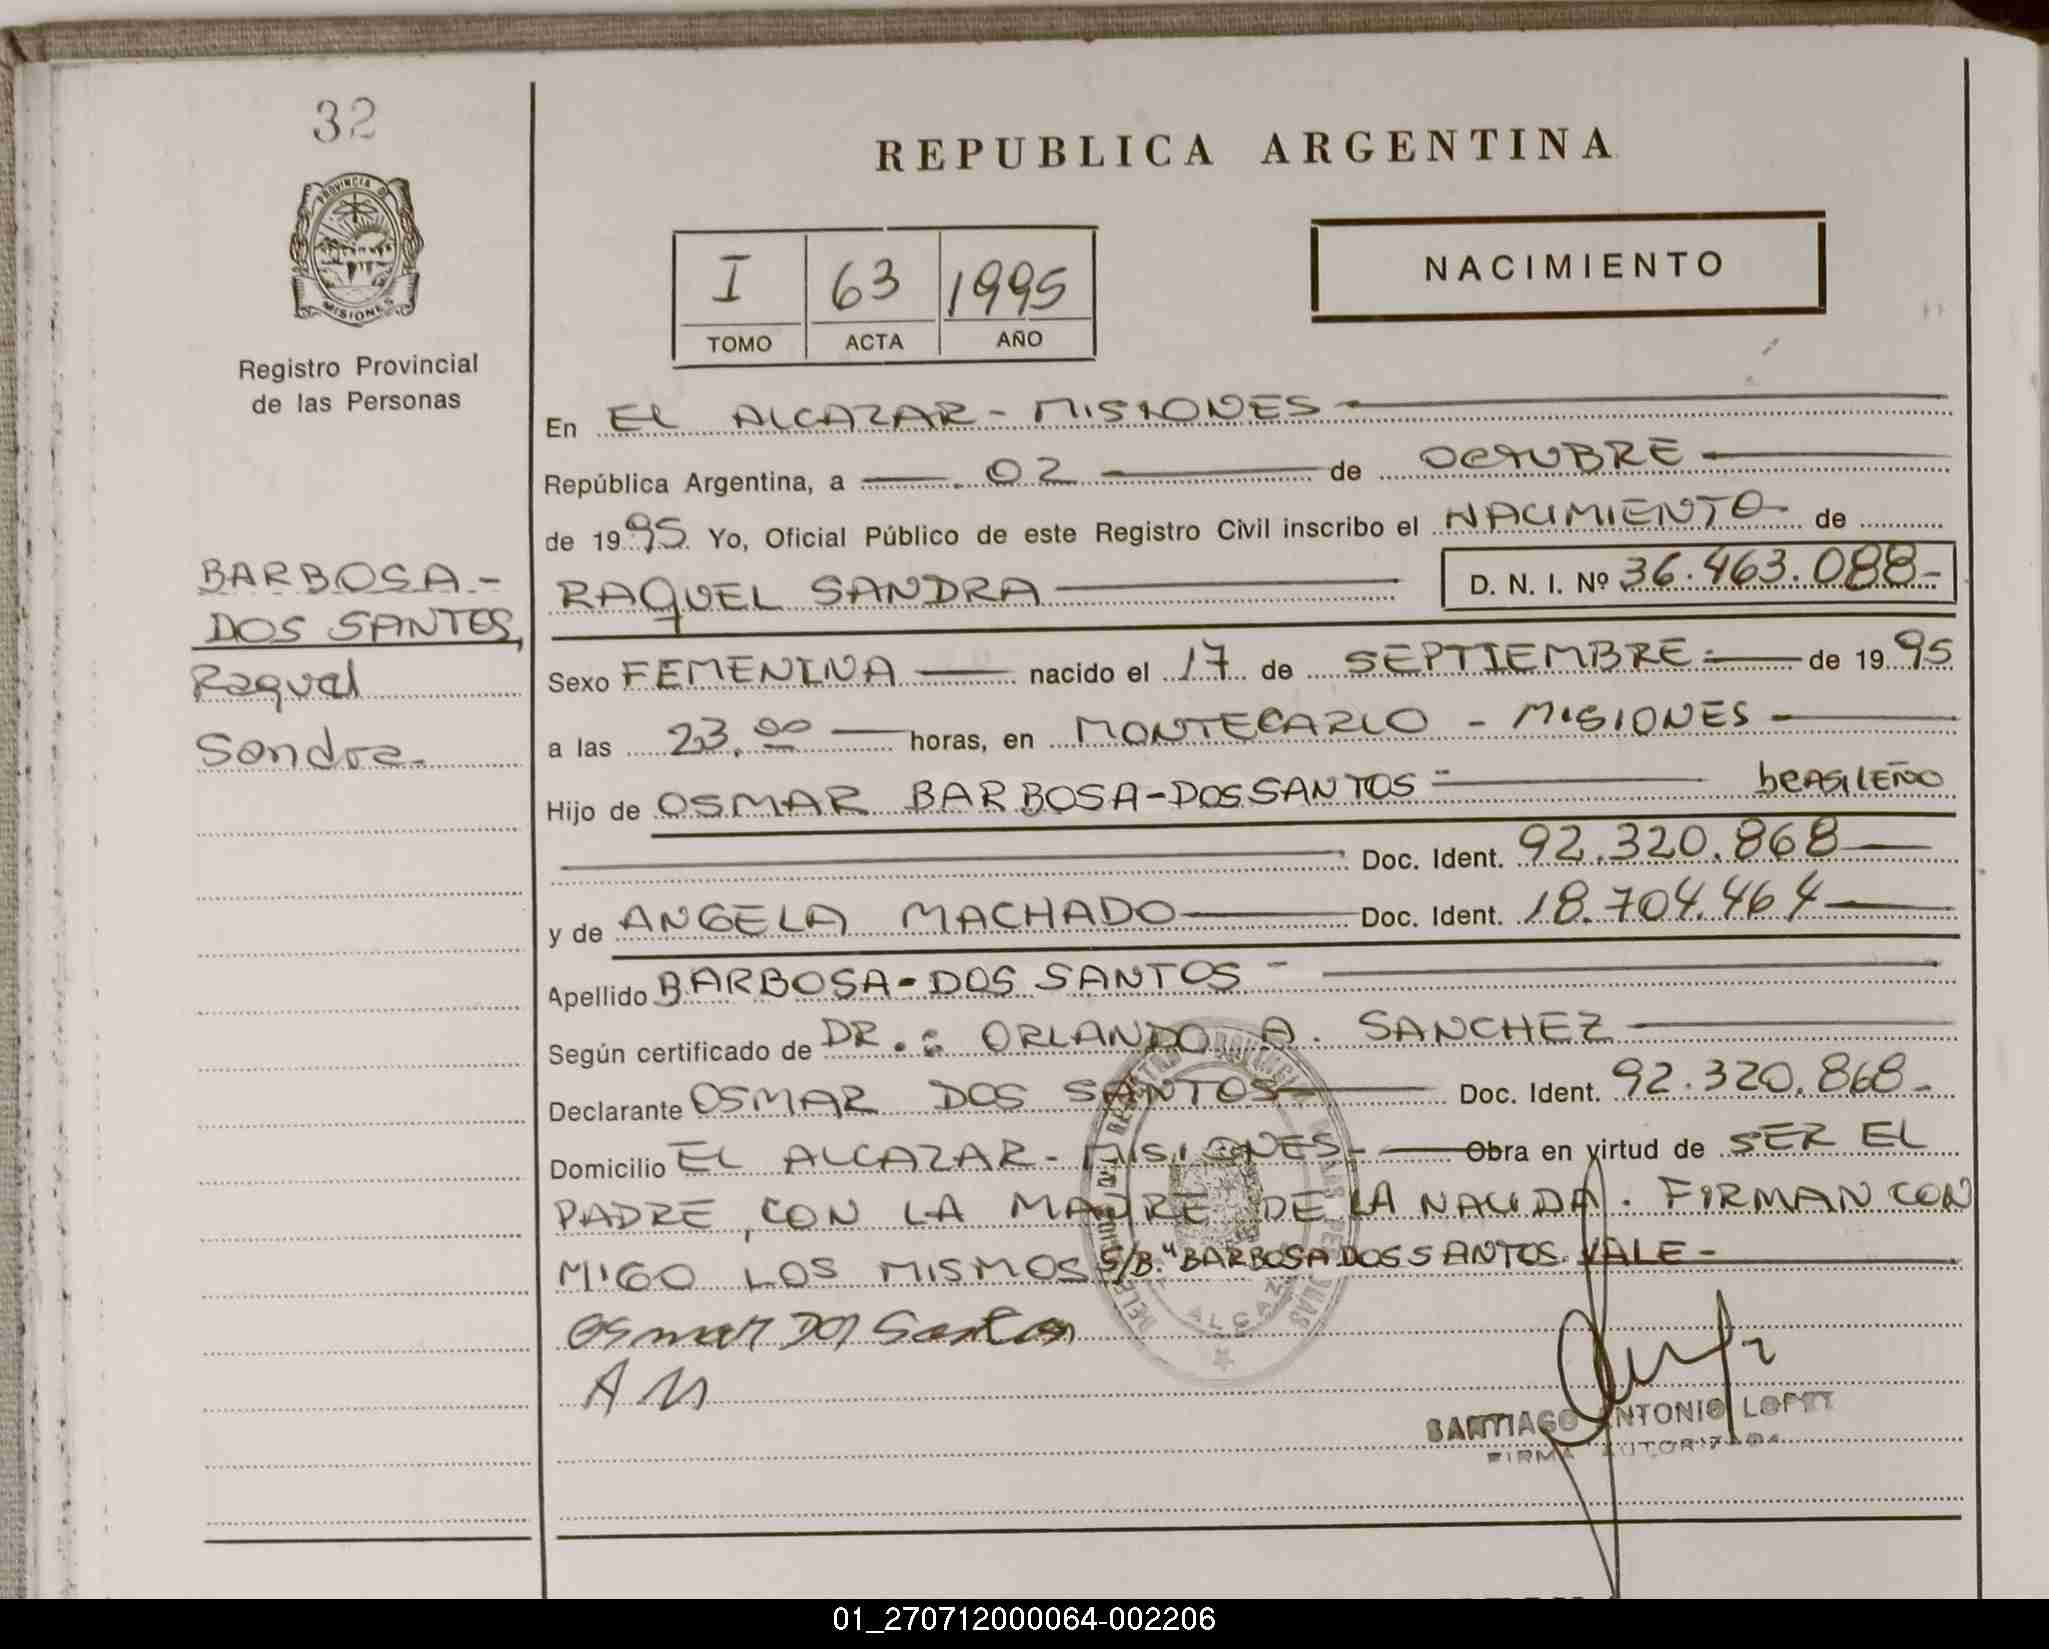 32
PROVINCIA D
MISIONES
Registro Provincial
de las Personas
REPUBLICA ARGENTINA
I 63 1995
TOMO ACTA AÑO
NACIMIENTO
En EL ALCAZAR - MISIONES
República Argentina, a 02 de OCTUBRE
de 1995 Yo, Oficial Público de este Registro Civil inscribo el NACIMIENTO de
RAQUEL SANDRA D. N. I. Nº 36.463.088-
BARBOSA-
DOS SANTOS,
Raquel
Sandra.
Sexo FEMENINA nacido el 17 de SEPTIEMBRE de 1995
a las 23,00 horas, en MONTECARLO - MISIONES -
Hijo de OSMAR BARBOSA-DOS SANTOS - brasileño
Doc. Ident. 92.320.868
y de ANGELA MACHADO Doc. Ident. 18.704.464
Apellido BARBOSA-DOS SANTOS -
Según certificado de DR.: ORLANDO A. SANCHEZ
Declarante OSMAR DOS SANTOS Doc. Ident. 92.320.868-
Domicilio EL ALCAZAR - MISIONES- Obra en virtud de SER EL
PADRE, CON LA MADRE DE LA NACIDA. FIRMAN CON
MIGO LOS MISMOS S/B. "BARBOSA DOS SANTOS. VALE-
Osmar Dos Santos
A M
SANTIAGO ANTONIO LOPEZ
FIRMA AUTORIZADA
01_270712000064-002206